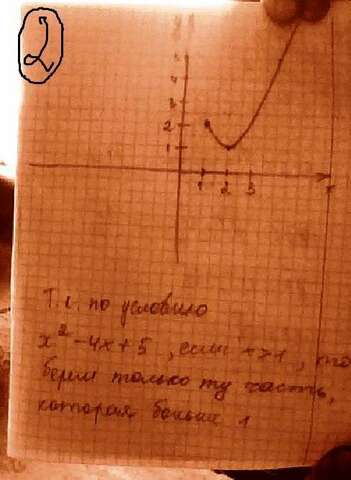 2
5
4
3
2
1
1 2 3
Т.к. по условию
x² - 4x + 5 , если x > 1 , то
берем только ту часть,
которая больше 1